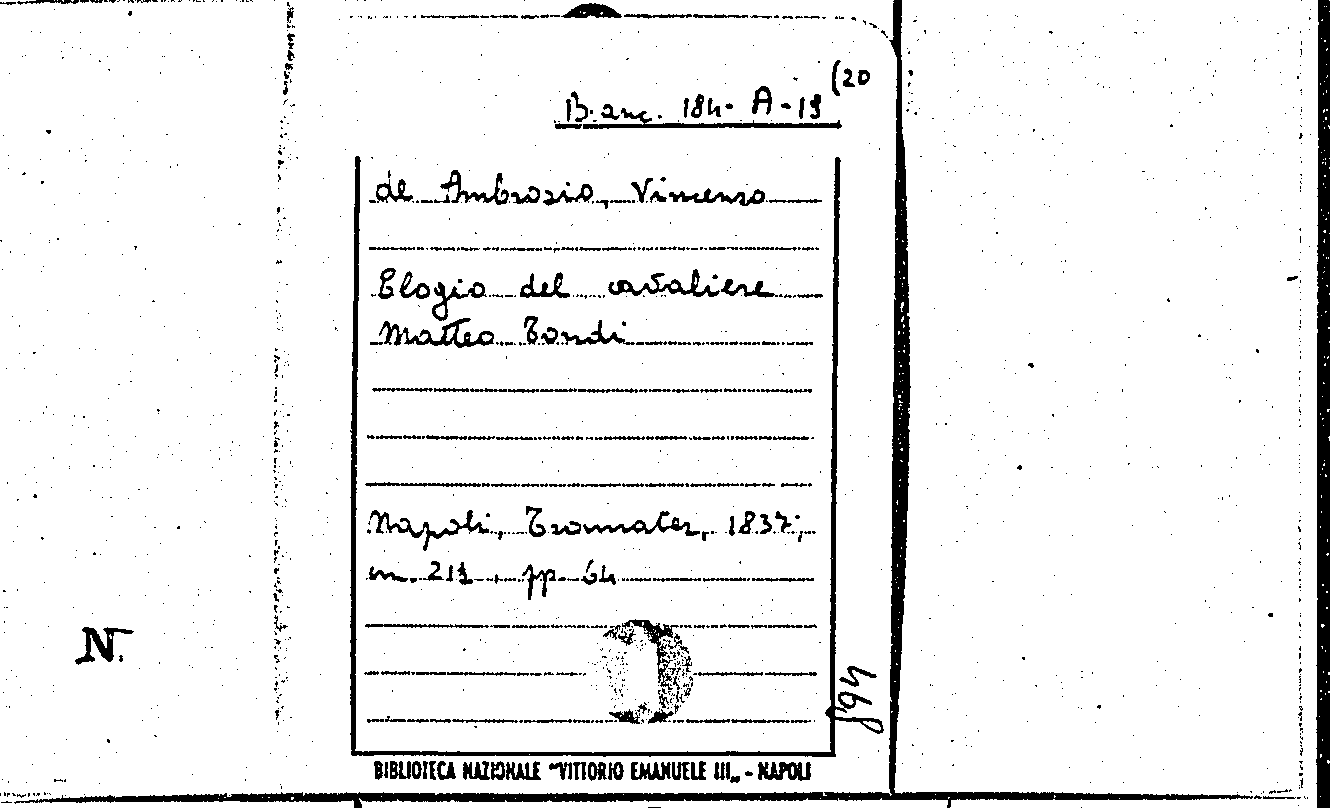 B. anc. 184-A-19 (20
de Ambrosio, Vincenzo
Elogio del cavaliere
Matteo Tondi
Napoli, Tramater, 1837;
in. 211, pp. 64
N.
BIBLIOTECA NAZIONALE "VITTORIO EMANUELE III„ - NAPOLI